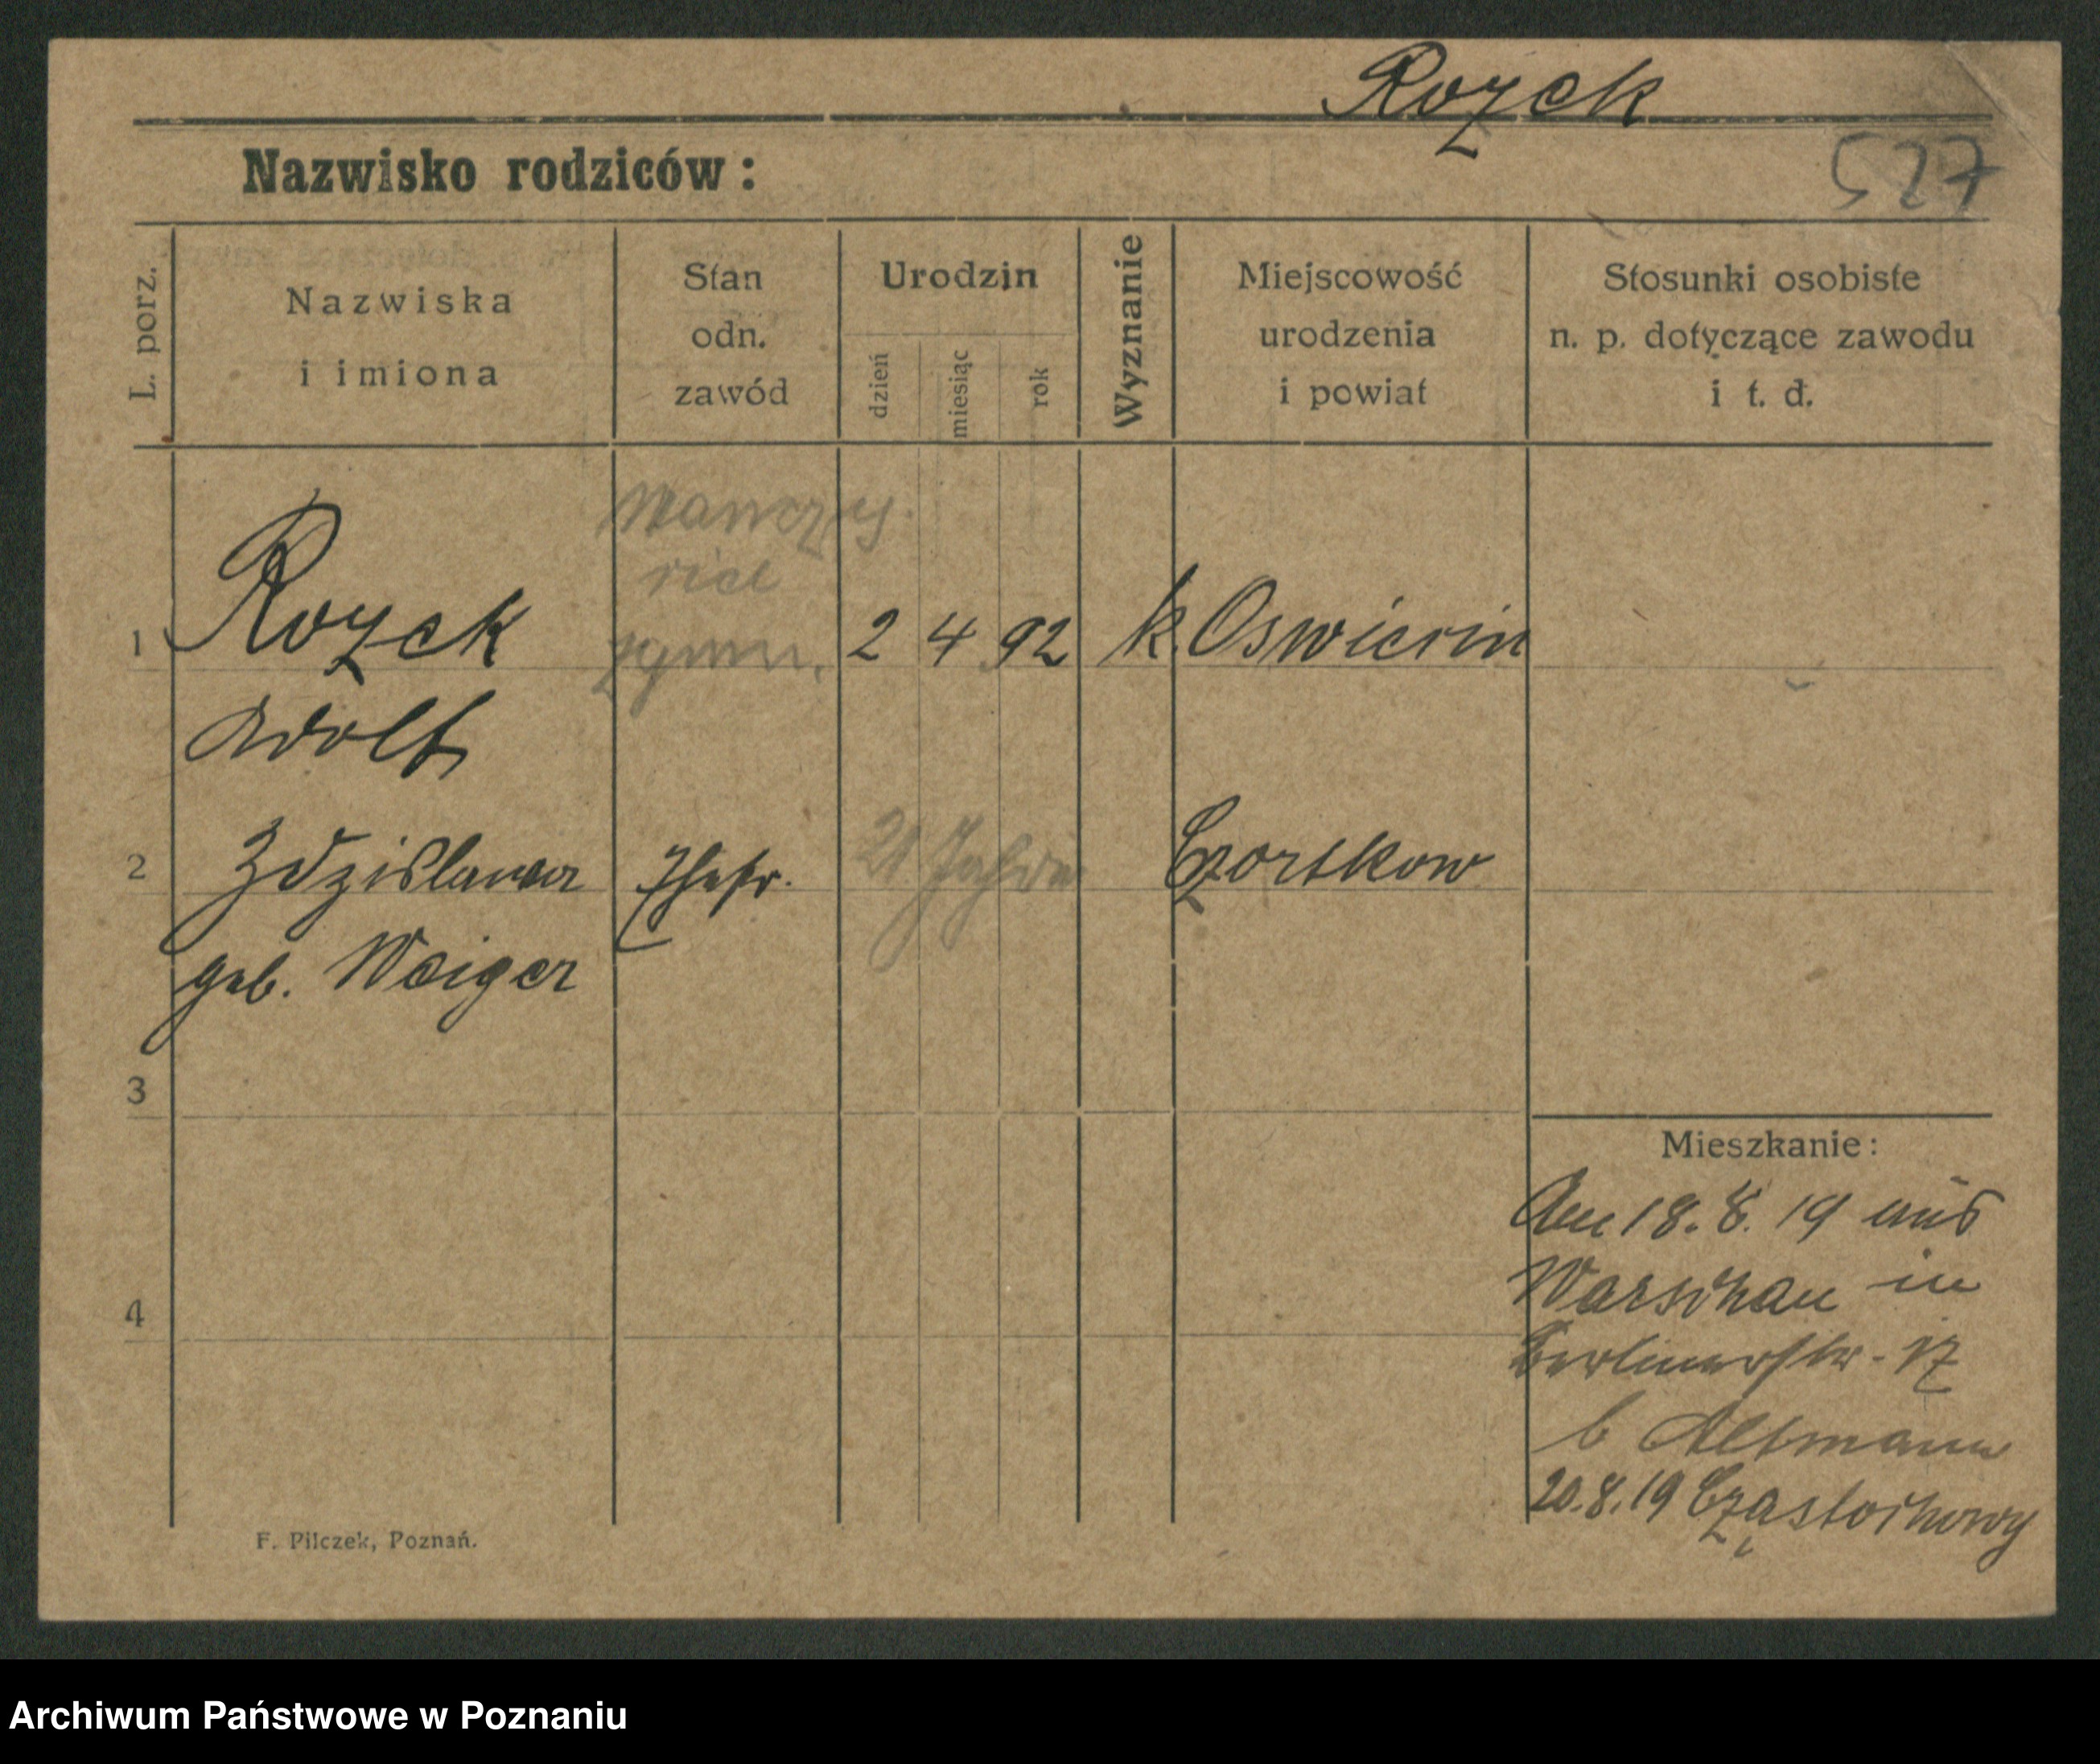 Rozek
Nazwisko rodziców:
527
L. porz.
Nazwiska
i imiona
Stan
odn.
zawód
Urodzin
dzień
miesiąc
rok
Wyznanie
Miejscowość
urodzenia
i powiat
Stosunki osobiste
n. p. dotyczące zawodu
i t. d.
nauczy-
ciel
gymn.
1 Rozek 2 4 92 k. Oswiecin
Adolf
2 Zdzislawa Ehefr. 21 Jahre Czortkow
geb. Weiger
3
4
Mieszkanie:
Am 18. 8. 19 aus
Warschau in
Berlinerstr. 17
b Altmann
20.8.19 Cząstochowy
F. Pilczek, Poznań.
Archiwum Państwowe w Poznaniu